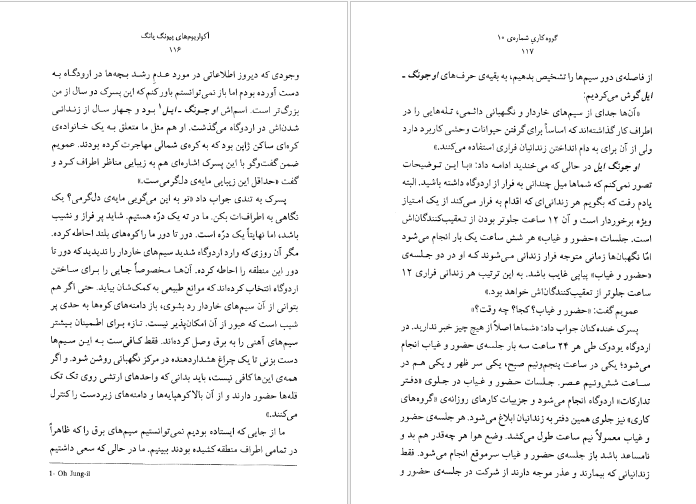 آکواریوم‌های پیونگ یانگ
۱۱۶
وجودی که دیروز اطلاعاتی در مورد عدم رشد بچه‌ها در اردوگاه به
دست آورده بودم اما باز نمی‌توانستم باور کنم که این پسرک دو سال از من
بزرگ‌تر است. اسم‌اش اوجونگ ـ ایل۱ بود و چهار سال از زندانی
شدن‌اش در اردوگاه می‌گذشت. او هم مثل ما متعلق به یک خانواده‌ی
کره‌ای ساکن ژاپن بود که به کره‌ی شمالی مهاجرت کرده بودند. عمویم
ضمن گفت‌وگو با این پسرک اشاره‌ای هم به زیبایی مناظر اطراف کرد و
گفت «حداقل این زیبایی مایه‌ی دل‌گرمی‌ست.»
پسرک به تندی جواب داد «تو به این می‌گویی مایه‌ی دل‌گرمی؟ یک
نگاهی به اطراف‌ات بکن. ما در ته یک درّه هستیم. شاید پر فراز و نشیب
باشد، اما نهایتاً یک درّه است. دور تا دور ما را کوه‌های بلند احاطه کرده.
مگر آن روزی که وارد اردوگاه شدید سیم‌های خاردار را ندیدید که دور تا
دور این منطقه را احاطه کرده. آن‌ها مخصوصاً جایی را برای ساختن
اردوگاه انتخاب کرده‌اند که موانع طبیعی به کمک‌شان بیاید. حتی اگر هم
بتوانی از آن سیم‌های خاردار رد بشوی، باز دامنه‌های کوه‌ها به حدی پر
شیب است که عبور از آن امکان‌پذیر نیست. تازه برای اطمینان بیشتر
سیم‌های آهنی را به برق وصل کرده‌اند. فقط کافی‌ست به این سیم‌ها
دست بزنی تا یک چراغ هشداردهنده در مرکز نگهبانی روشن شود. و اگر
همه‌ی این‌ها کافی نیست، باید بدانی که واحدهای ارتشی روی تک تک
قله‌ها حضور دارند و از آن بالا کوهپایه‌ها و دامنه‌های زیردست را کنترل
می‌کنند.»
ما از جایی که ایستاده بودیم نمی‌توانستیم سیم‌های برق را که ظاهراً
در تمامی اطراف منطقه کشیده بودند ببینیم. ما در حالی که سعی داشتیم
1- Oh Jung-il
گروه کاری شماره‌ی ۱۰
۱۱۷
از فاصله‌ی دور سیم‌ها را تشخیص بدهیم، به بقیه‌ی حرف‌های اوجونگ ـ
ایل گوش می‌کردیم:
«آن‌ها جدای از سیم‌های خاردار و نگهبانی دائمی، تله‌هایی را در
اطراف کار گذاشته‌اند که اساساً برای گرفتن حیوانات وحشی کاربرد دارد
ولی از آن برای به دام انداختن زندانیان فراری استفاده می‌کنند.»
اوجونگ ایل در حالی که می‌خندید ادامه داد: «با این توضیحات
تصور نمی‌کنم که شماها میل چندانی به فرار از اردوگاه داشته باشید. البته
یادم رفت که بگویم هر زندانی‌ای که اقدام به فرار می‌کند از یک امتیاز
ویژه برخوردار است و آن ۱۲ ساعت جلوتر بودن از تعقیب‌کنندگان‌اش
است. جلسات «حضور و غیاب» هر شش ساعت یک بار انجام می‌شود
امّا نگهبان‌ها زمانی متوجه فرار زندانی می‌شوند که او در دو جلسه‌ی
«حضور و غیاب» پیاپی غایب باشد. به این ترتیب هر زندانی فراری ۱۲
ساعت جلوتر از تعقیب‌کنندگان‌اش خواهد بود.»
عمویم گفت: «حضور و غیاب؟ کجا؟ چه وقت؟»
پسرک خنده‌کنان جواب داد: «شماها اصلاً از هیچ چیز خبر ندارید. در
اردوگاه یودوک طی هر ۲۴ ساعت سه بار جلسه‌ی حضور و غیاب انجام
می‌شود؛ یکی در ساعت پنج‌ونیم صبح، یکی سر ظهر و یکی هم در
ساعت شش‌ونیم عصر. جلسات حضور و غیاب در جلوی «دفتر
تدارکات» اردوگاه انجام می‌شود و جزییات کارهای روزانه‌ی «گروه‌های
کاری» نیز جلوی همین دفتر به زندانیان ابلاغ می‌شود. هر جلسه‌ی حضور
و غیاب معمولاً نیم ساعت طول می‌کشد. وضع هوا هر چه‌قدر هم بد و
نامساعد باشد باز جلسه‌ی حضور و غیاب سرموقع انجام می‌شود. فقط
زندانیانی که بیمارند و عذر موجه دارند از شرکت در جلسه‌ی حضور و